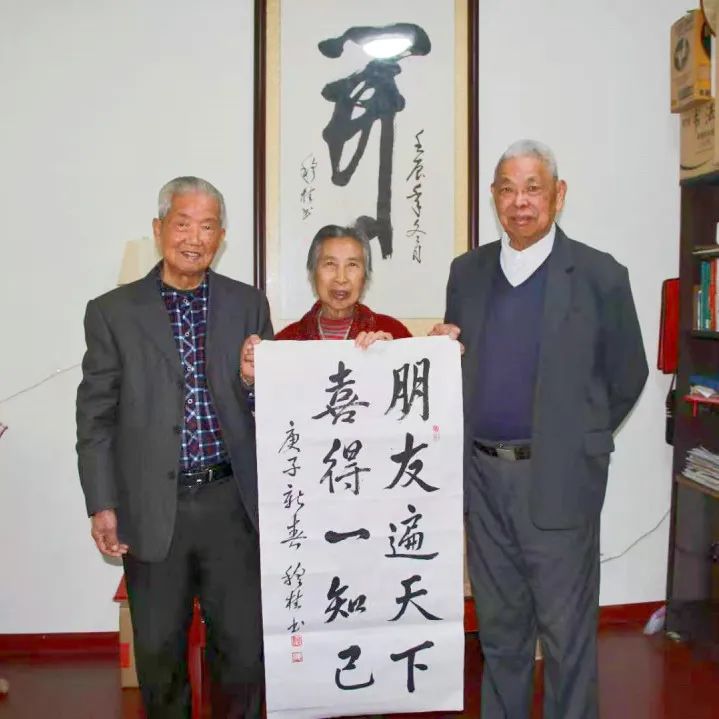 壬辰年冬月
穆桂书
朋友遍天下
喜得一知己
庚子新春 穆桂书